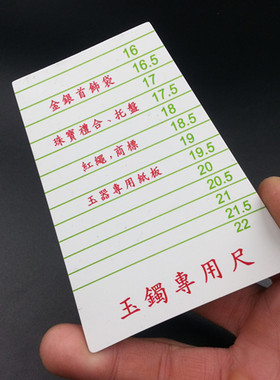 16
16.5
金銀首飾袋
17
17.5
珠寶禮合、托盤
18
18.5
紅繩，商標
19
19.5
玉器專用紙板
20
20.5
21
21.5
22
玉鐲專用尺